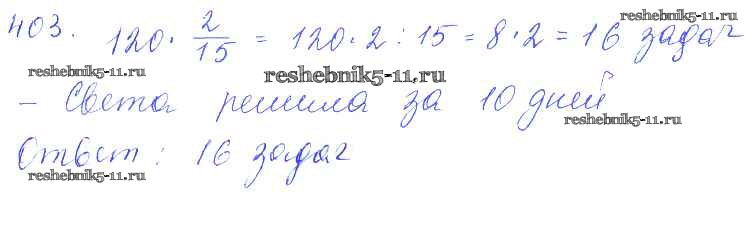 403. 120 · 2/15 = 120 · 2 : 15 = 8 · 2 = 16 задач
reshebnik5-11.ru
reshebnik5-11.ru
reshebnik5-11.ru
– Света решила за 10 дней
reshebnik5-11.ru
Ответ: 16 задач
reshebnik5-11.ru